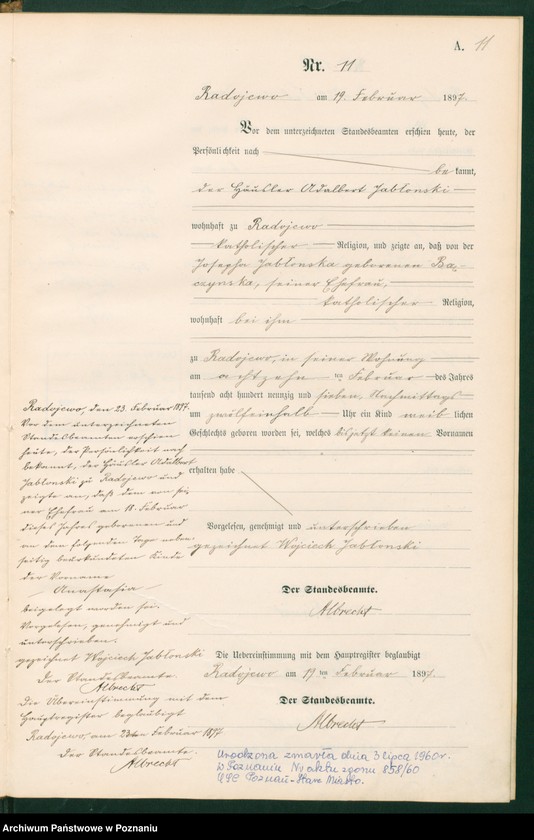 A. 11
Nr. 11
Radojewo am 19. Februar 1897.
Vor dem unterzeichneten Standesbeamten erschien heute, der
Persönlichkeit nach
bekannt,
der Häusler Adalbert Jablonski
wohnhaft zu Radojewo
katholischer Religion, und zeigte an, daß von der
Josepha Jabłonska geborenen Ba-
czynska, seiner Ehefrau,
katholischer Religion,
wohnhaft bei ihm
zu Radojewo, in seiner Wohnung
am achtzehn ten Februar des Jahres
tausend acht hundert neunzig und sieben, Nachmittags
um zwölfeinhalb Uhr ein Kind weiblichen
Geschlechts geboren worden sei, welches bis jetzt keinen Vornamen
erhalten habe
Vorgelesen, genehmigt und unterschrieben
gezeichnet Wojciech Jabłonski
Der Standesbeamte.
Albrecht
Die Uebereinstimmung mit dem Hauptregister beglaubigt
Radojewo am 19 ten Februar 1897.
Der Standesbeamte.
Albrecht
Radojewo, den 23. Februar 1897.
Vor dem unterzeichneten
Standesbeamten erschien
heute, der Persönlichkeit nach
bekannt, der Häusler Adalbert
Jablonski zu Radojewo und
zeigte an, daß dem von sei-
ner Ehefrau am 18. Februar
dieses Jahres geborenen und
an dem folgenden Tage neben-
seitig beurkundeten Kinde
der Vorname
Anastasia
beigelegt worden sei.
Vorgelesen, genehmigt und
unterschrieben.
gezeichnet Wojciech Jabłonski
Der Standesbeamte
Albrecht
Die Übereinstimmung mit dem
Hauptregister beglaubigt
Radojewo, am 23ten Februar 1897
Der Standesbeamte.
Albrecht
Urodzona zmarła dnia 3 lipca 1960r.
w Poznaniu Nr aktu zgonu 858/60
USC Poznań-Stare Miasto.
Archiwum Państwowe w Poznaniu